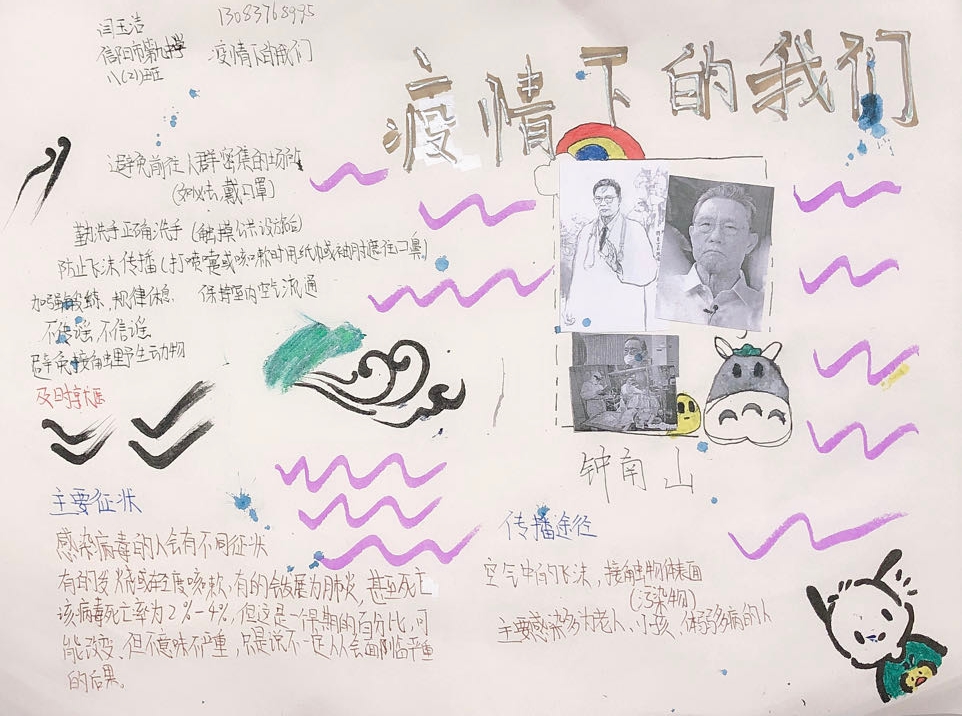 闫玉洁
信阳市第九中学
八(2)班
13083768995
疫情下的我们
疫情下的我们
避免前往人群密集的场所
(如必去,戴口罩)
勤洗手正确洗手(触摸公共设施后)
防止飞沫传播(打喷嚏或咳嗽时用纸巾或袖肘遮住口鼻)
加强锻炼,规律休息 保持室内空气流通
不传谣,不信谣
避免接触野生动物
及时就医
主要征状
感染病毒的人会有不同征状
有的发烧或轻度咳嗽,有的会发展为肺炎,甚至死亡
该病毒死亡率为2%-4%,但这是一个早期的百分比,可
能改变、但不意味不严重,只是说不一定人人会面临严重
的后果。
钟南山
传播途径
空气中的飞沫,接触物体表面
(污染物)
主要感染多为老人、小孩、体弱多病的人